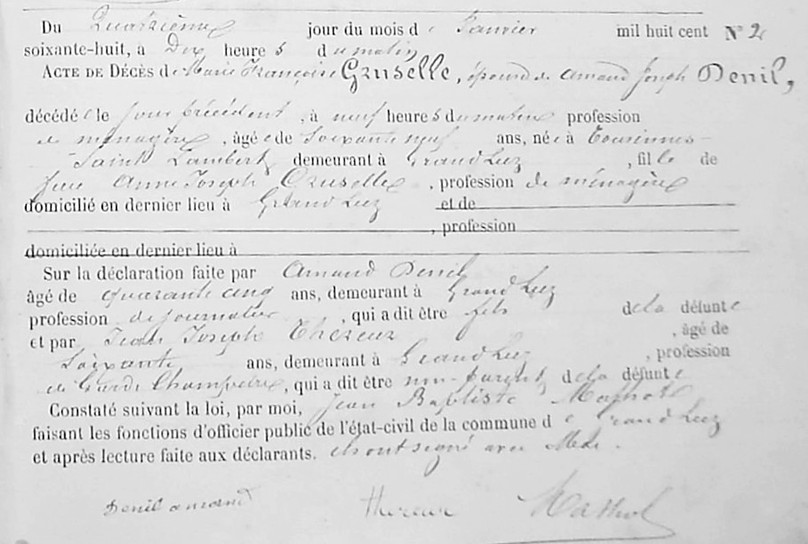 Du Quatrième jour du mois de Janvier mil huit cent N° 2
soixante-huit, à Dix heures du matin
ACTE DE DÉCÈS de Marie Françoise Gruselle, épouse de Amand Joseph Denil,
décédée le jour précédent, à neuf heures du matin profession
de ménagère, âgée de Soixante neuf ans, née à Tourinnes-
Saint Lambert demeurant à Grand Leez, fille de
feue Anne Joseph Gruselle, profession de ménagère
domicilié en dernier lieu à Grand Leez et de
, profession
domiciliée en dernier lieu à
Sur la déclaration faite par Amand Denil
âgé de quarante cinq ans, demeurant à Grand Leez
profession de journalier, qui a dit être fils de la défunte
et par Jean Joseph Thereur, âgé de
Soixante ans, demeurant à Grand Leez, profession
de Garde Champêtre, qui a dit être non-parent de la défunte
Constaté suivant la loi, par moi, Jean Baptiste
faisant les fonctions d'officier public de l'état-civil de la commune de Grand Leez
et après lecture faite aux déclarants. ils ont signé avec
Denil amand Thereur